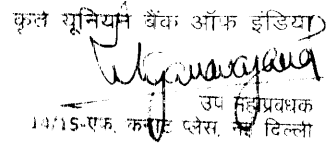 कृते यूनियन बैंक ऑफ इंडिया
उप महाप्रबंधक
14/15-एफ, कनाट प्लेस, नई दिल्ली